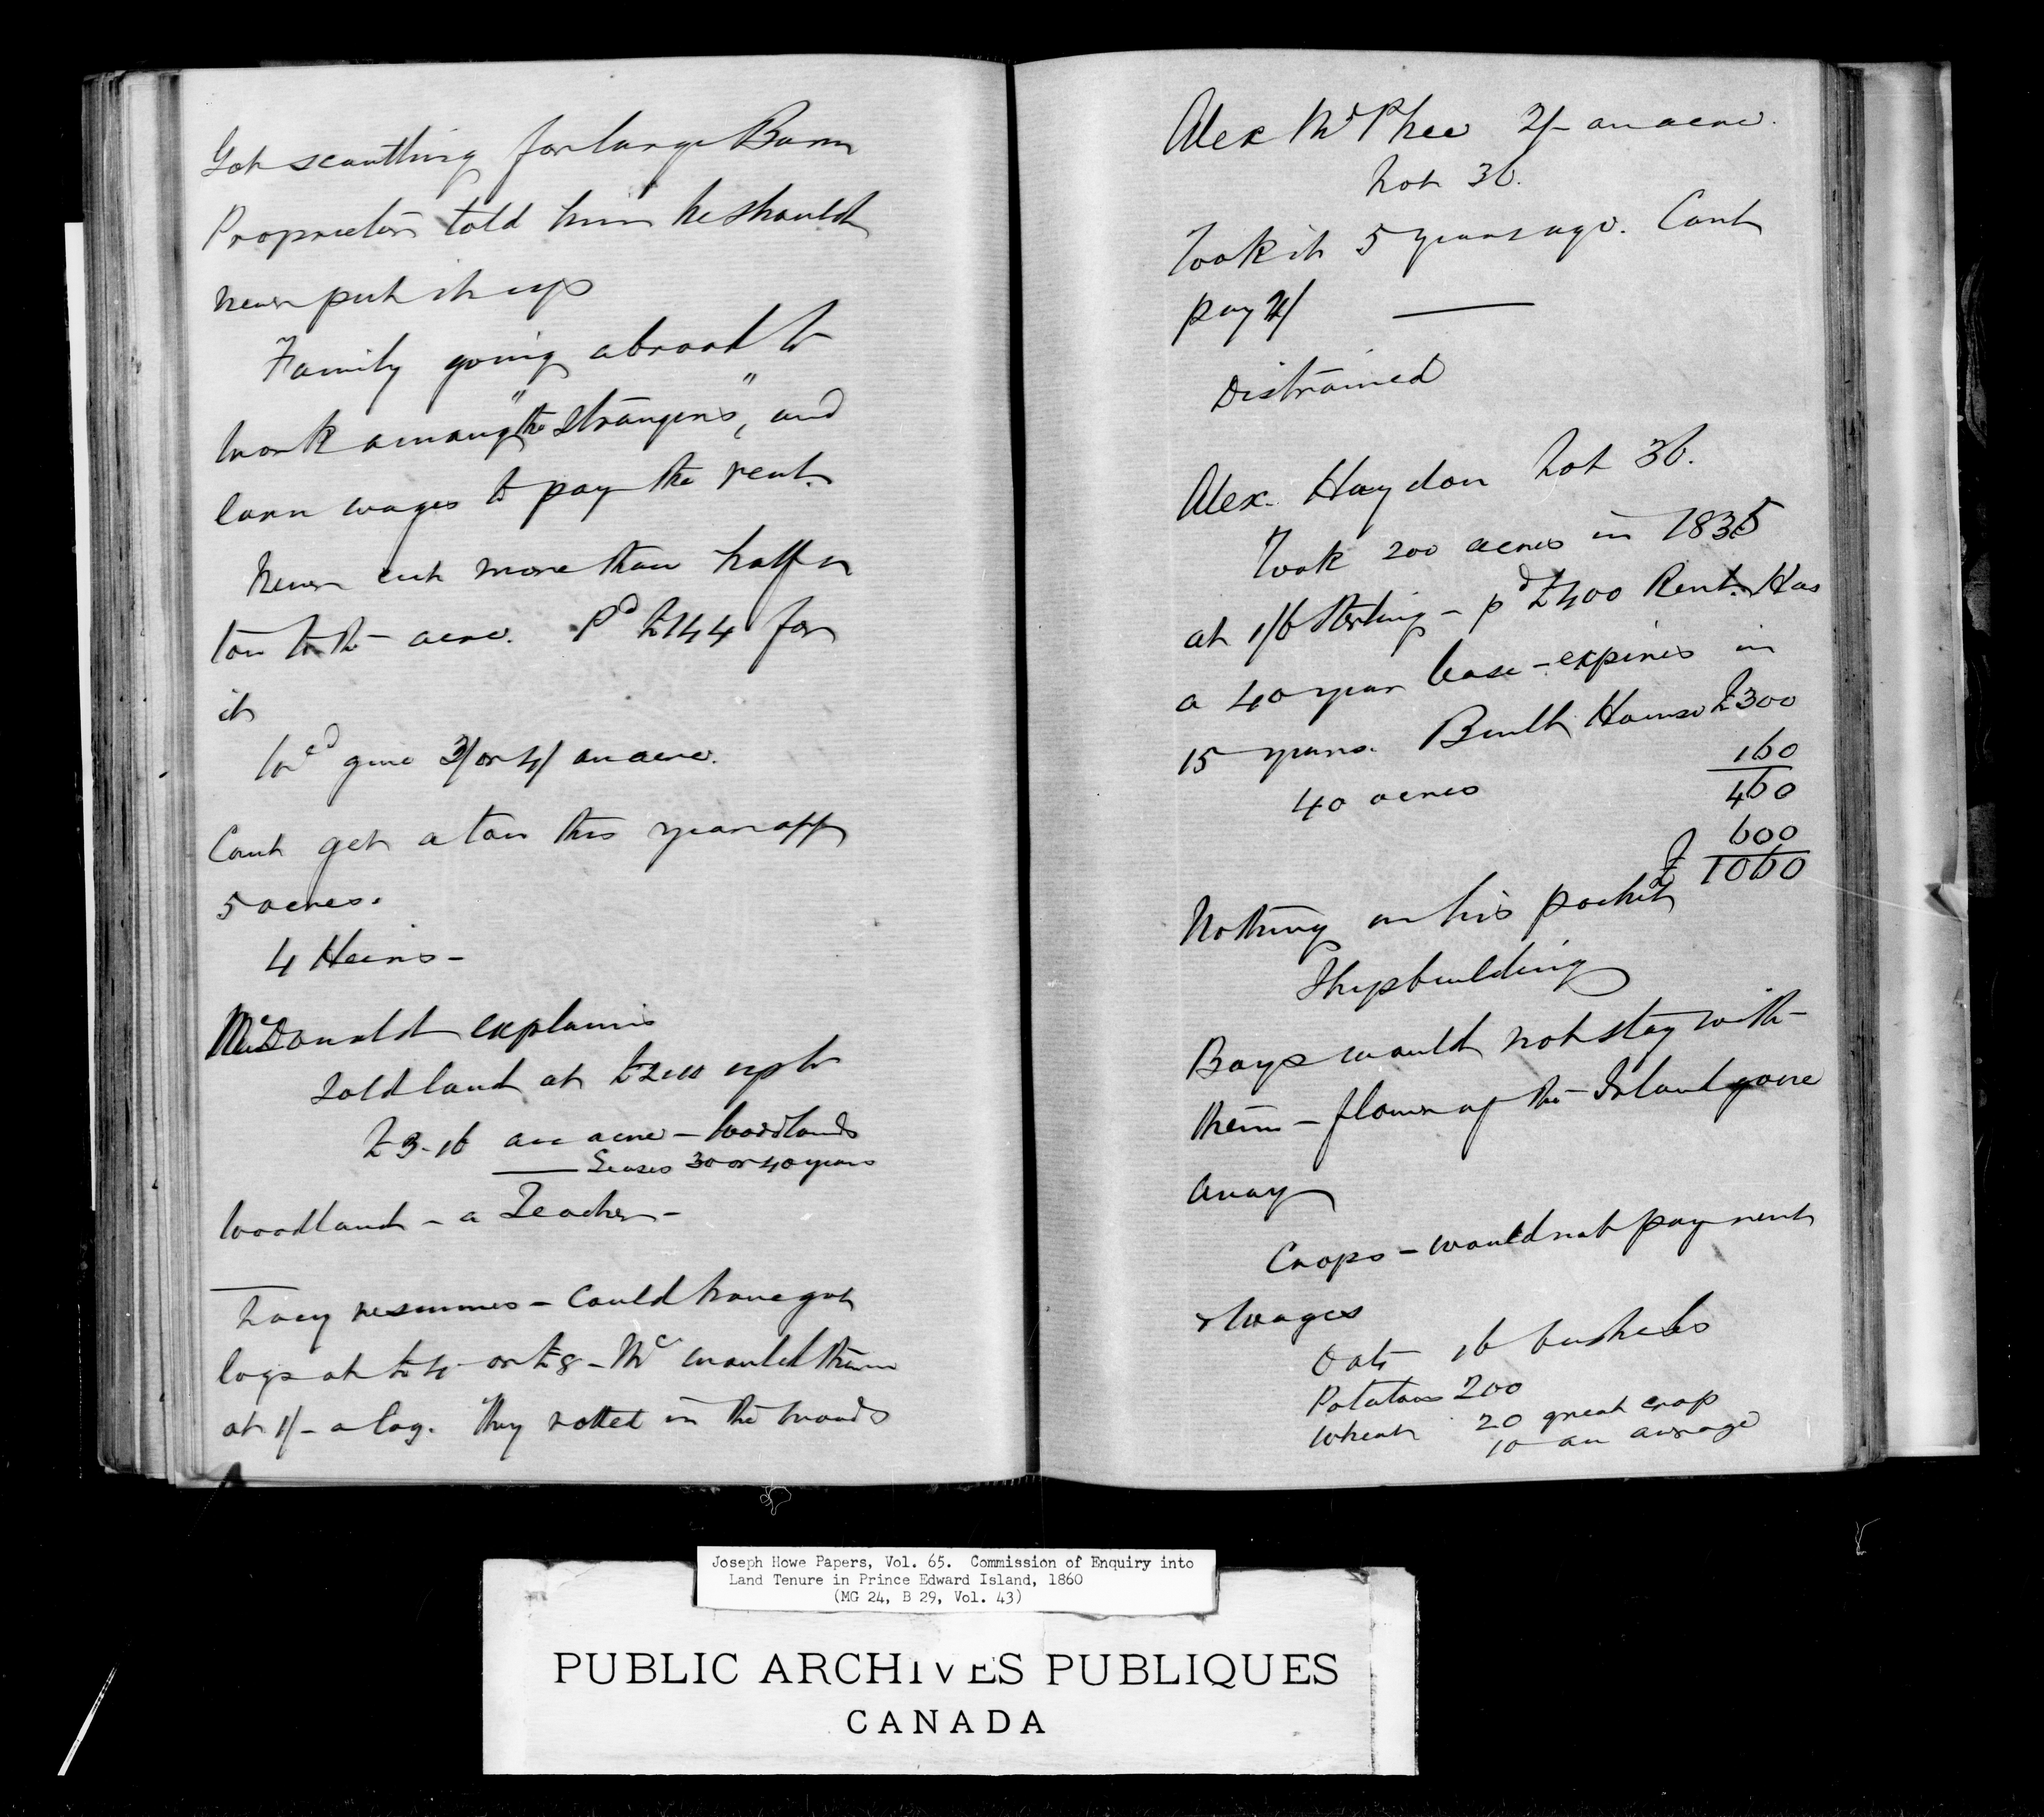 Got scantling for large Barn
Proprietor told him he should
never put it up
Family going abroad to
work among "the Strangers", and
earn wages to pay the rent.
Never cut more than half a
ton to the acre. Pd £144 for
it
Wd give 3/ or 4/ an acre.
Cant get a ton this year off
5 acres.
4 Heirs -
McDonald explains
Sold land at £2 up to
£3.16 an acre - woodlands
Leases 30 or 40 years
Woodland - a Teacher -
Lacy resumes - Could have got
logs at £4 or £8 - Mc would them
at 1/- a log. They rotted in the woods
Alex McPhee 2/- an acre.
Lot 36.
Took it 5 years ago. Cant
pay 2/
Distrained
Alex. Haydon Lot 36.
Took 200 acres in 1835
at 1/6 Sterling - pd £400 Rent. Has
a 40 year lease - expires in
15 years. Built House £300
40 acres 160
460
600
£ 1060
Nothing in his pocket
Shipbuilding
Boys would not stay with
them - flower of the Island gone
away
Crops - would not pay rent
& wages
Oats 16 bushels
Potatoes 200
Wheat 20 great crop
10 an average
Joseph Howe Papers, Vol. 65. Commission of Enquiry into
Land Tenure in Prince Edward Island, 1860
(MG 24, B 29, Vol. 43)
PUBLIC ARCHIVES PUBLIQUES
CANADA